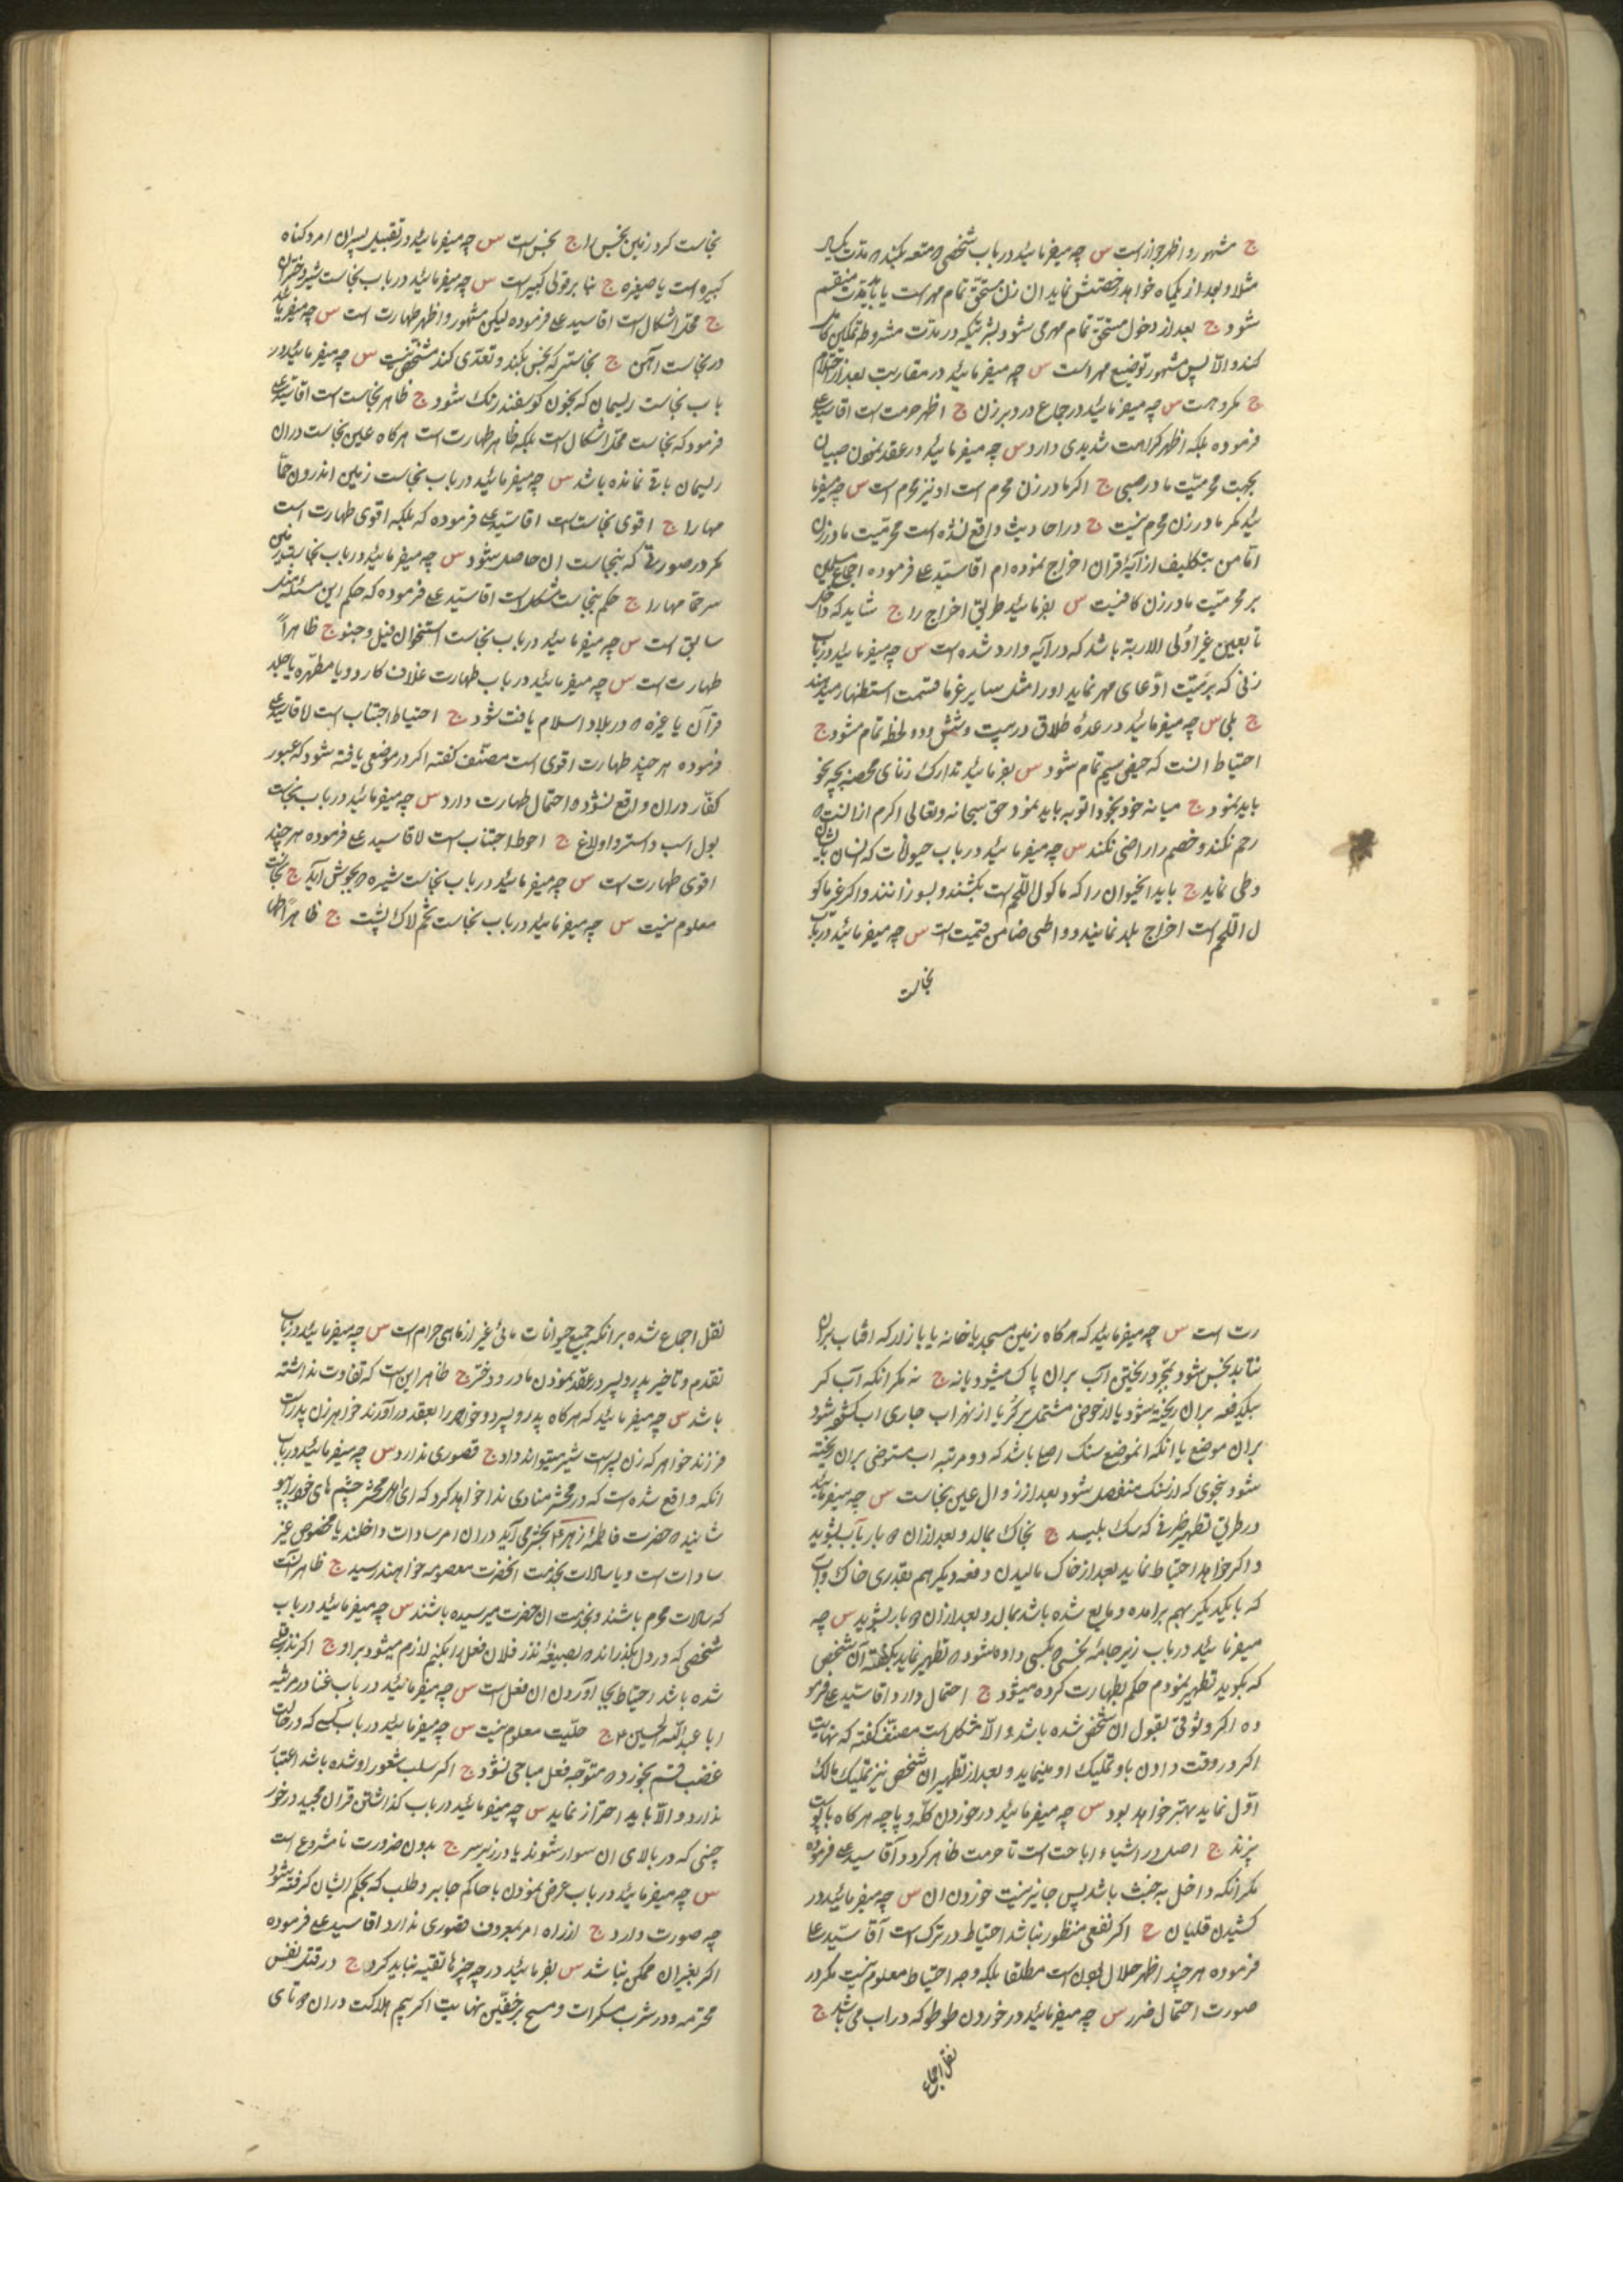 ج مشهور و اظهر جواز است س چه میفرمائید در باب شخصی که متعه بکند مدت یکسال
مثلا و بعد از یکماه خواهد رخصتش نماید ان زن مستحق تمام مهر است یا بمدت منقسم
شود ج بعد از دخول مستحق تمام مهر می شود بشرطیکه در مدت مشروط تمکین کامل
کند و الا پس مشهور توضیع مهر است س چه میفرمائید در مقاربت بعد از احتلام
ج مکروهست س چه میفرمائید در جماع در دبر زن ج اظهر حرمت است اقا سید علی
فرموده بلکه اظهر کراهت شدیدی دارد س چه میفرمائید در عقد نمودن صبیان
بجهت محرمیت مادر صبی ج اکر مادر زن محرم است او نیز محرم است س چه میفرما
ئید مکر مادر زن محرم نیست ج در احادیث واقع نشده است محرمیت مادر زن
اما من بتکلیف از آیهٔ قران اخراج نموده ام اقا سید علی فرموده اجماع مسلمین
بر محرمیت مادر زن کافیست س بفرمائید طریق اخراج را ج شاید که داخل
تابعین غیر اولی الاربة باشد که در آیه وارد شده است س چه میفرمائید در باب
زنی که بر میت ادعای مهر نماید او را مثل سایر غرما قسمت استظهار میدهند
ج بلی س چه میفرمائید در عدهٔ طلاق در بیست و شش و دو لحظه تمام مشود ج
احتیاط انست که حیض سیم تمام شود س بفرمائید تدارک زنای محصنه بچه نحو
باید نمود ج میانه خود بخود توبه باید نمود حق سبحانه و تعالی اکرم از انست
رحم نکند و خصم را راضی نکند س چه میفرمائید در باب حیوانات که انسان بآن
وطی نماید ج باید انحیوان را که ماکول اللحم است بکشند و بسوزانند و اکر غیر ماکو
ل اللحم است اخراج بلد نمایند و واطی ضامن قیمت است س چه میفرمائید در باب
نجاست
نجاست کرد زمین نجس را ج نجس است س چه میفرمائید در تقبیل پسران امرد کناه
کبیره است یا صغیره ج بنا بر قولی کبیره است س چه میفرمائید در باب نجاست شیر دختران
ج محل اشکال است اقا سید علی فرموده لیکن مشهور و اظهر طهارت است س چه میفرمائید
در نجاست آهن ج نجاستی که نجس بکند و تعدی کند مشخص نیست س چه میفرمائید در
باب نجاست ریسمان که بخون کوسفند رنک شود ج ظاهر نجاست است اقا سید علی
فرمود که نجاست محل اشکال است بلکه ظاهر طهارت است هرکاه عین نجاست در ان
ریسمان باقی نمانده باشد س چه میفرمائید در باب نجاست زمین اندرون حما
مها را ج اقوی نجاست است اقا سید علی فرموده که بلکه اقوی طهارت است
مکر در صورتی که نجاست ان حاصل شود س چه میفرمائید در باب نجاست
سر حمامها را ج حکم بنجاست مشکل است اقا سید علی فرموده که حکم این مسئله مثل
سابق است س چه میفرمائید در باب نجاست استخوان فیل و جینو ج ظاهراً
طهارت است س چه میفرمائید در باب طهارت غلاف کارد و یا مطهره یا جلد
قرآن یا غیره که در بلاد اسلام یافت شود ج احتیاط اجتناب است اقا سید علی
فرموده هر چند طهارت اقوی است مصنف کفته اکر در موضعی یافته شود که عبور
کفار در ان واقع نشود احتمال طهارت دارد س چه میفرمائید در باب نجاست
بول اسب و استر و اولاغ ج احوط اجتناب است اقا سید علی فرموده هر چند
اقوی طهارت است س چه میفرمائید در باب نجاست شیره که بجوش آید ج نجاست
معلوم نیست س چه میفرمائید در باب نجاست تخم لاک پشت ج ظاهراً طها
رت است س چه میفرمائید که هرکاه زمین مسجد یا خانه یا بازار که افتاب بر ان
نتابد نجس شود بمجرد ریختن آب بر ان پاک میشود یا نه ج نه مکر انکه آب کر
بیکدفعه بر ان ریخته شود یا از حوضی مشتمل بر کر یا از نهر اب جاری اب کشیده شود
بر ان موضع یا انکه انموضع سنک رصا باشد که دو مرتبه اب مستوضی بر ان ریخته
شود بنحوی که از سنک منفصل شود بعد از زوال عین نجاست س چه میفرمائید
در طریق تطهیر ظرفی که سک بلیسد ج بخاک بمالد و بعد از ان ۲ بار بآب بشوید
و اکر خواهد احتیاط نماید بعد از خاک مالیدن دفعه دیکر هم بقدری خاک و آب
که با یکدیکر بهم برامده و مایع شده باشد بمالد و بعد از ان ۲ بار بشوید س چه
میفرمائید در باب زیر جامهٔ نجس که بکسی داده شود تطهیر نماید بکفته آن شخص
که بکوید تطهیر نمودم حکم بطهارت کرده میشود ج احتمال دارد اقا سید علی فرمو
ده اکر وثوقی بقول ان شخص شده باشد و الا مشکل است مصنف کفته که نهایت
اکر در وقت دادن باو تملیک او مینماید و بعد از تطهیر ان شخص نیز تملیک مالک
اول نماید بهتر خواهد بود س چه میفرمائید در خوردن کله و پاچه هرکاه با پوست
بپزند ج اصل در اشیاء اباحت است تا حرمت ظاهر کردد آقا سید علی فرموده
مکر انکه داخل به خبث باشد پس جایز نیست خوردن ان س چه میفرمائید در
کشیدن قلیان ج اکر نفعی منظور نباشد احتیاط در ترک است آقا سید علی
فرموده هر چند اظهر حلال بودن است مطلقا بلکه وجه احتیاط معلوم نیست مکر در
صورت احتمال ضرر س چه میفرمائید در خوردن طوطو که در اب می باشد ج
نقل اجماع
نقل اجماع شده بر انکه جمیع حیوانات مائی غیر از ماهی حرام است س چه میفرمائید در باب
تقدم و تاخیر پدر و پسر در عقد نمودن مادر و دختر ج ظاهر این است که تفاوت نداشته
باشد س چه میفرمائید که هرکاه پدر و پسر دو خواهر را بعقد در آورند خواهر زن پدر است
فرزند خواهر که زن پسر است شیر میتواند داد ج قصوری ندارد س چه میفرمائید در باب
انکه واقع شده است که در محشر منادی ندا خواهد کرد که ای اهل محشر چشم های خود را بپو
شانید که حضرت فاطمه زهرا ۴ بمحشر می آید در ان امر سادات داخلند یا مخصوص غیر
سادات است و یا سادات بخدمت انحضرت معصومه خواهند رسید ج ظاهر آنست
که سادات محرم باشند و بخدمت ان حضرت میرسیده باشند س چه میفرمائید در باب
شخصی که در دل بکذراند که بصیغهٔ نذر فلان فعل را بکنم لازم میشود بر او ج اکر نذر قلبی
شده باشد احتیاط بجا آوردن ان فعل است س چه میفرمائید در باب غنا در مرثیه
ابا عبدالله الحسین ۴ ج حلیت معلوم نیست س چه میفرمائید در باب کسی که در حالت
غضب قسم بخورد که متوجه فعل مباحی نشود ج اکر سلب شعور او شده باشد اعتبار
ندارد و الا باید احتراز نماید س چه میفرمائید در باب کذاشتن قران مجید در خور
جینی که در بالای ان سوار شوند یا در زیر سر ج بدون ضرورت نامشروع است
س چه میفرمائید در باب عرض نمودن با حاکم جابر و طلب که بحکم ایشان کرفته شود
چه صورت دارد ج از راه امر بمعروف قصوری ندارد اقا سید علی فرموده
اکر بغیر ان ممکن نباشد س بفرمائید در چه چیزها تقیه نباید کرد ج در قتل نفس
محترمه و در شرب مسکرات و مسح بر خفین نهایت اکر بیم هلاکت در ان تای